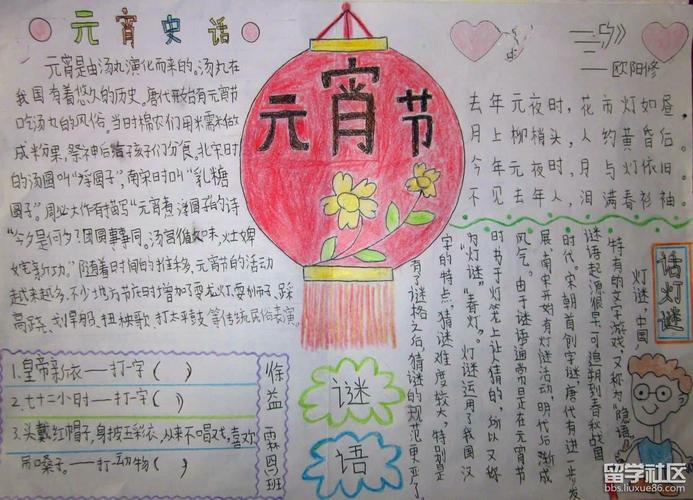 元宵史话
元宵是由汤丸演化而来的。汤丸在
我国有着悠久的历史。唐代开始有元宵节
吃汤丸的风俗。当时棉农们用糯米做
成米果,祭神后给孩子们分食。北宋时
的汤圆叫“浮圆子”,南宋时叫“乳糖
圆子”。周必大作有描写“元宵煮浮圆子的诗
“今夕是何夕?团圆事事同。汤官循旧味,灶婢
诧新功。”随着时间的推移,元宵节的活动
越来越多,不少地方节庆时增加了耍龙灯、耍狮子、踩
高跷、划旱船、扭秧歌、打太平鼓等传统民俗表演。
元宵节
——欧阳修
去年元夜时,花市灯如昼。
月上柳梢头,人约黄昏后。
今年元夜时,月与灯依旧
不见去年人,泪满春衫袖。
话灯谜
灯谜 中国
特有的文字游戏,又称为“隐语。
谜语起源很早,可追朔到春秋战国
时代。宋朝首创字谜,唐代有进一步发
展,南宋开始有灯谜活动,明代后渐成
风气。由于谜语通常是在元宵节
时书于灯笼上让人猜的,所以又称
为“灯谜”“春灯”。灯谜运用了我国汉
字的特点,猜谜难度较大,特别是
有了谜格之后,猜谜的规范更
1.皇帝新衣——打一字( )
2.七十二小时——打一字( )
3.头戴红帽子,身披五彩衣,从来不唱戏,喜欢
吊嗓子。——打动物( )
徐益霖四班
谜
语
留学社区
bbs.liuxue86.com